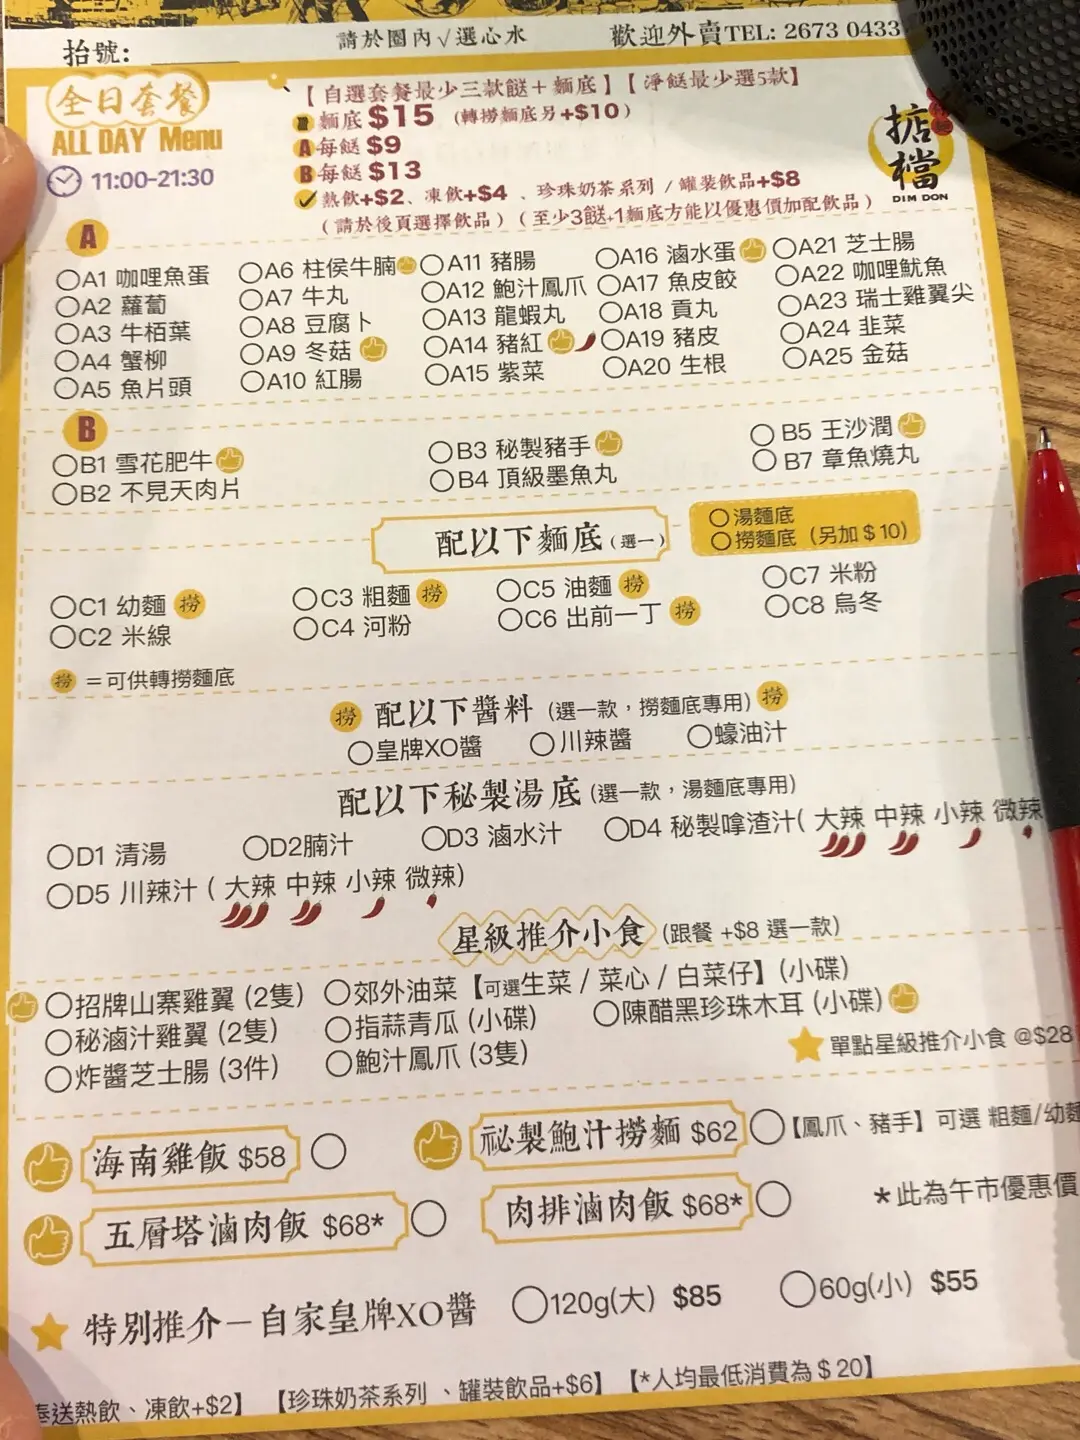 抬號:
請於圈內√選心水
歡迎外賣TEL: 2673 0433
全日套餐
ALL DAY Menu
11:00-21:30
【自選套餐最少三款餸+麵底】【淨餸最少選5款】
麵底 $15 (轉撈麵底另+$10)
A 每餸 $9
B 每餸 $13
熱飲+$2、凍飲+$4 、珍珠奶茶系列 / 罐裝飲品+$8
(請於後頁選擇飲品) (至少3餸+1麵底方能以優惠價加配飲品)
掂檔
DIM DON
A
A1 咖哩魚蛋
A2 蘿蔔
A3 牛栢葉
A4 蟹柳
A5 魚片頭
A6 柱侯牛腩
A7 牛丸
A8 豆腐卜
A9 冬菇
A10 紅腸
A11 豬腸
A12 鮑汁鳳爪
A13 龍蝦丸
A14 豬紅
A15 紫菜
A16 滷水蛋
A17 魚皮餃
A18 貢丸
A19 豬皮
A20 生根
A21 芝士腸
A22 咖哩魷魚
A23 瑞士雞翼尖
A24 韭菜
A25 金菇
B
B1 雪花肥牛
B2 不見天肉片
B3 秘製豬手
B4 頂級墨魚丸
B5 王沙潤
B7 章魚燒丸
配以下麵底 (選一)
湯麵底
撈麵底 (另加 $ 10)
C1 幼麵 撈
C2 米線
C3 粗麵 撈
C4 河粉
C5 油麵 撈
C6 出前一丁 撈
C7 米粉
C8 烏冬
撈 =可供轉撈麵底
撈 配以下醬料 (選一款，撈麵底專用) 撈
皇牌XO醬 川辣醬 蠔油汁
配以下秘製湯底 (選一款，湯麵底專用)
D1 清湯 D2腩汁 D3 滷水汁 D4 秘製嗱渣汁( 大辣 中辣 小辣 微辣
D5 川辣汁 ( 大辣 中辣 小辣 微辣)
星級推介小食 (跟餐 +$8 選一款)
招牌山寨雞翼 (2隻) 郊外油菜【可選生菜 / 菜心 / 白菜仔】(小碟)
秘滷汁雞翼 (2隻) 指蒜青瓜 (小碟) 陳醋黑珍珠木耳 (小碟)
炸醬芝士腸 (3件) 鮑汁鳳爪 (3隻)
單點星級推介小食 @$28
海南雞飯 $58
祕製鮑汁撈麵 $62 【鳳爪、豬手】可選 粗麵/幼麵
五層塔滷肉飯 $68*
肉排滷肉飯 $68*
*此為午市優惠價
特別推介－自家皇牌XO醬 120g(大) $85 60g(小) $55
奉送熱飲、凍飲+$2】 【珍珠奶茶系列 、罐裝飲品+$6】 【*人均最低消費為 $ 20】